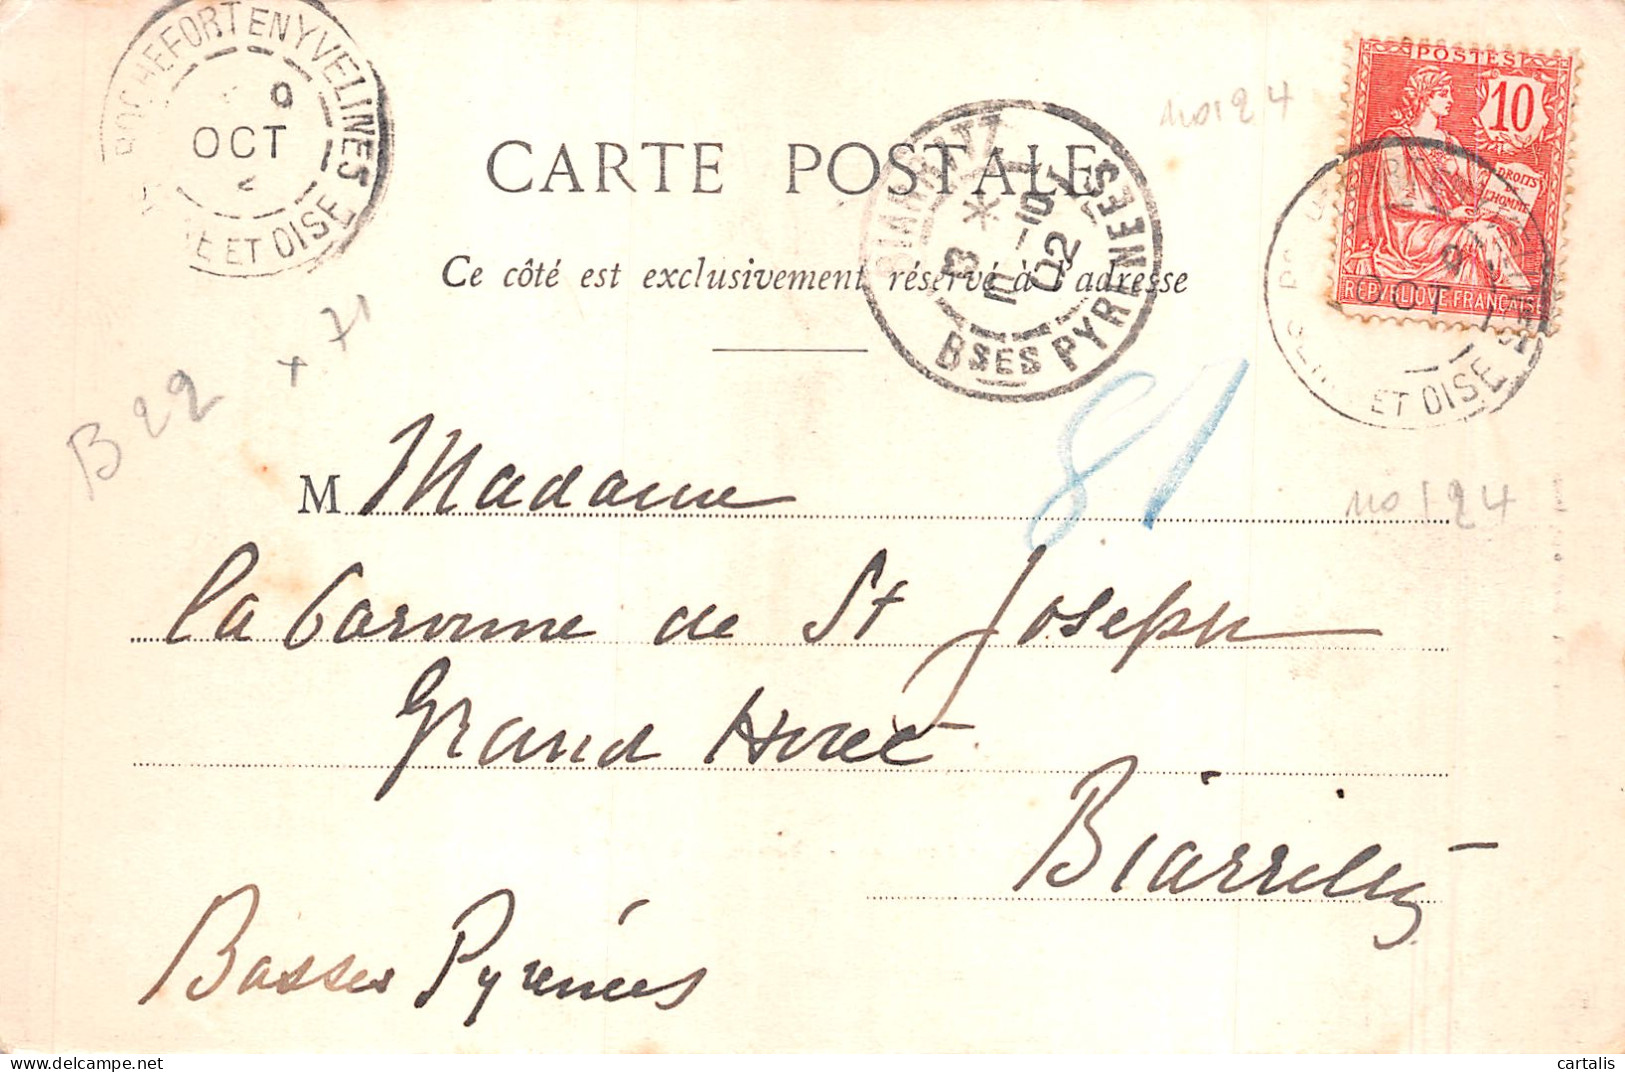 ROCHEFORT EN YVELINES
9
OCT
2
ET OISE
CARTE POSTALE
Ce côté est exclusivement réservé à l'adresse
BIARRITZ
10-10
02
BSES PYRENEES
no 124
POSTES
10
DROITS
L'HOMME
REPVBLIQVE FRANÇAISE
9
OCT
ET OISE
B 22
+ 71
81
no 124
M Madame
la Baronne de St Joseph
Grand Hotel
Biarritz
Basses Pyrénées
cartalis